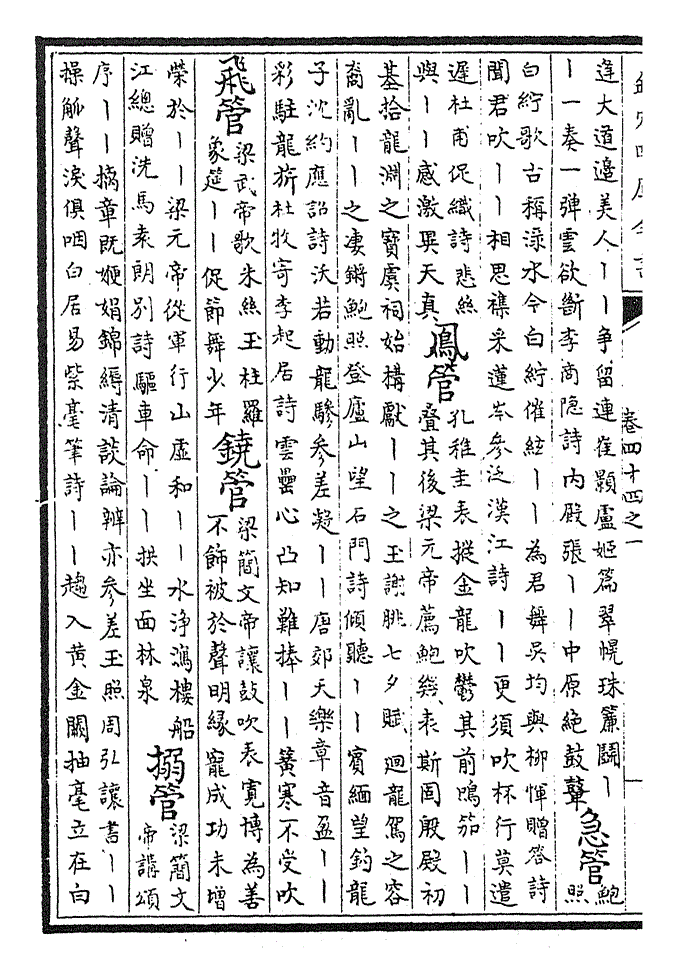 欽定四庫全書
卷四十四之一
逢大道邉美人丨丨爭留連崔顥盧姬篇翠幌珠簾鬬丨
丨一奏一彈雲欲斷李商隐詩内殿張丨丨中原絶鼓鼙
急管
鮑
照
白紵歌古稱渌水今白紵催絃丨丨為君舞吳均與柳惲贈答詩
聞君吹丨丨相思襍采蓮岑參泛漢江詩丨丨更須吹杯行莫遣
遲杜甫促織詩悲絲
與丨丨感激異天真
鳳管
孔稚圭表摐金龍吹鬱其前鳴笳丨丨
疊其後梁元帝薦鮑㡬表斯固殷殿初
基拾龍淵之寶虞祠始構獻丨丨之玉謝朓七夕賦廻龍駕之容
裔亂丨丨之凄鏘鮑照登廬山望石門詩傾聽丨丨賓緬望釣龍
子沈約應詔詩沃若動龍驂參差凝丨丨唐郊天樂章音盈丨丨
彩駐龍旂杜牧寄李起居詩雲罍心凸知難捧丨丨簧寒不受吹
飛管
梁武帝歌朱絲玉柱羅
象筵丨丨促節舞少年
鐃管
梁簡文帝讓鼓吹表寛博為善
不飾被於聲明緣寵成功未增
榮於丨丨梁元帝從軍行山虚和丨丨水浄瀉樓船
江總贈洗馬袁朗别詩驅車命丨丨拱坐面林泉
搦管
梁簡文
帝講頌
序丨丨摛章既㛹娟錦縟清談論辨亦參差玉照周弘讓書丨丨
操觚聲淚俱咽白居易紫毫筆詩丨丨趨入黄金闕抽毫立在白